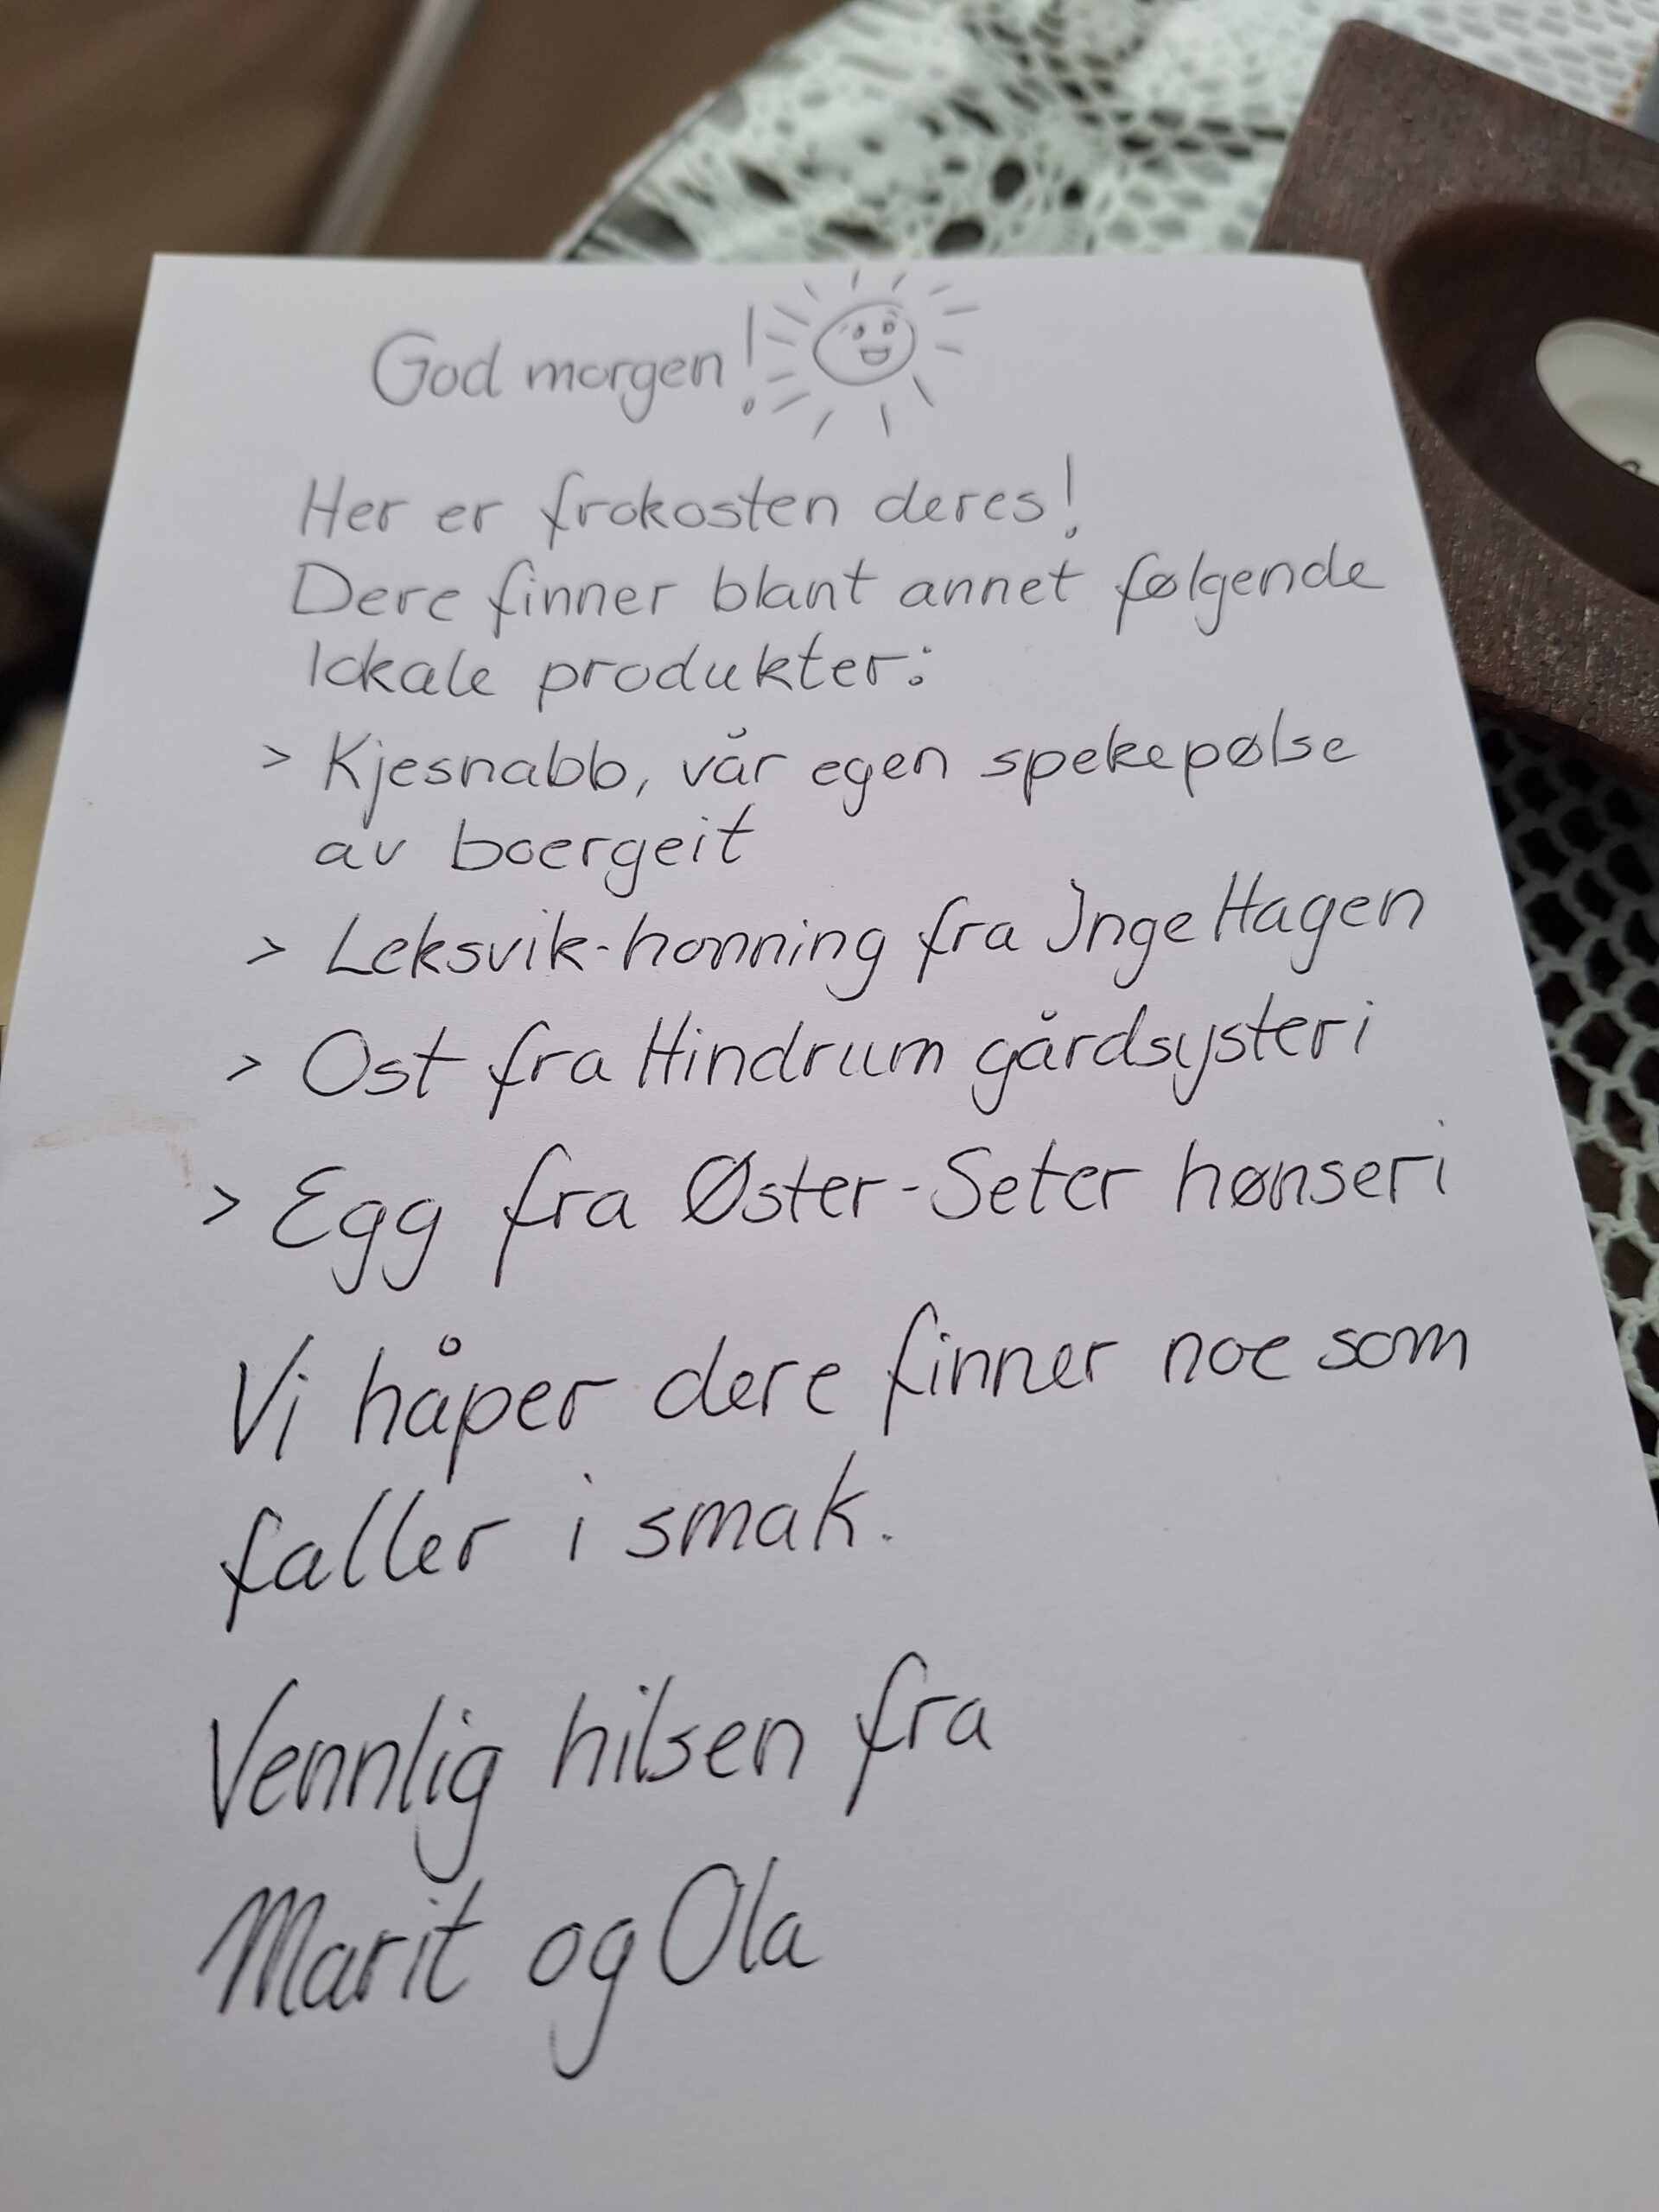 God morgen!
Her er frokosten deres!
Dere finner blant annet følgende
lokale produkter:
> Kjesnabb, vår egen spekepølse
av boergeit
> Leksvik-honning fra Inge Hagen
> Ost fra Hindrum gårdsysteri
> Egg fra Øster-Seter hønseri
Vi håper dere finner noe som
faller i smak.
Vennlig hilsen fra
Marit og Ola